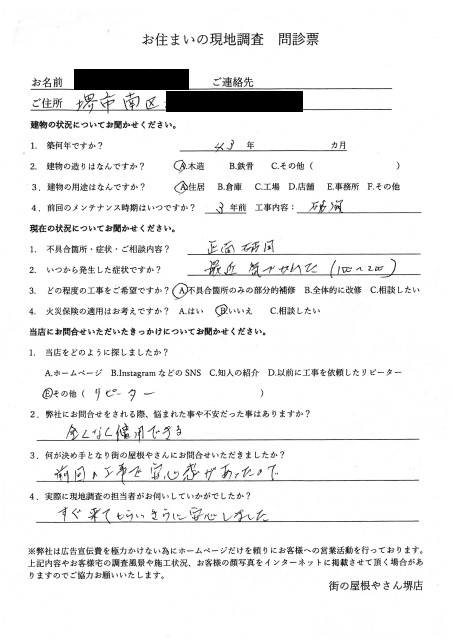 お住まいの現地調査　問診票
お名前　ご連絡先
ご住所　堺市南区
建物の状況についてお聞かせください。
1. 築何年ですか？　43 年　カ月
2. 建物の造りはなんですか？　A.木造　B.鉄骨　C.その他（　）
3. 建物の用途はなんですか？　A.住居　B.倉庫　C.工場　D.店舗　E.事務所　F.その他
4. 前回のメンテナンス時期はいつですか？　3 年前　工事内容：
現在の状況についてお聞かせください。
1. 不具合箇所・症状・ご相談内容？　正面
2. いつから発生した症状ですか？　最近 気がついた
3. どの程度の工事をご希望ですか？　A.不具合箇所のみの部分的補修　B.全体的に改修　C.相談したい
4. 火災保険の適用はお考えですか？　A.はい　B.いいえ　C.相談したい
当店にお問合せいただいたきっかけについてお聞かせください。
1. 当店をどのように探しましたか？
A.ホームページ　B.InstagramなどのSNS　C.知人の紹介　D.以前に工事を依頼したリピーター
E.その他（ リピーター ）
2. 弊社にお問合せをされる際、悩まれた事や不安だった事はありますか？
全くなく信用できる
3. 何が決め手となり街の屋根やさんにお問合せいただきましたか？
前回の工事で安心感があったので
4. 実際に現地調査の担当者がお伺いしていかがでしたか？
すぐ来てもらい 安心しました
※弊社は広告宣伝費を極力かけない為にホームページだけを頼りにお客様への営業活動を行っております。
上記内容やお客様宅の調査風景や施工状況、お客様の顔写真をインターネットに掲載させて頂く場合があ
りますのでご協力お願いいたします。
街の屋根やさん堺店